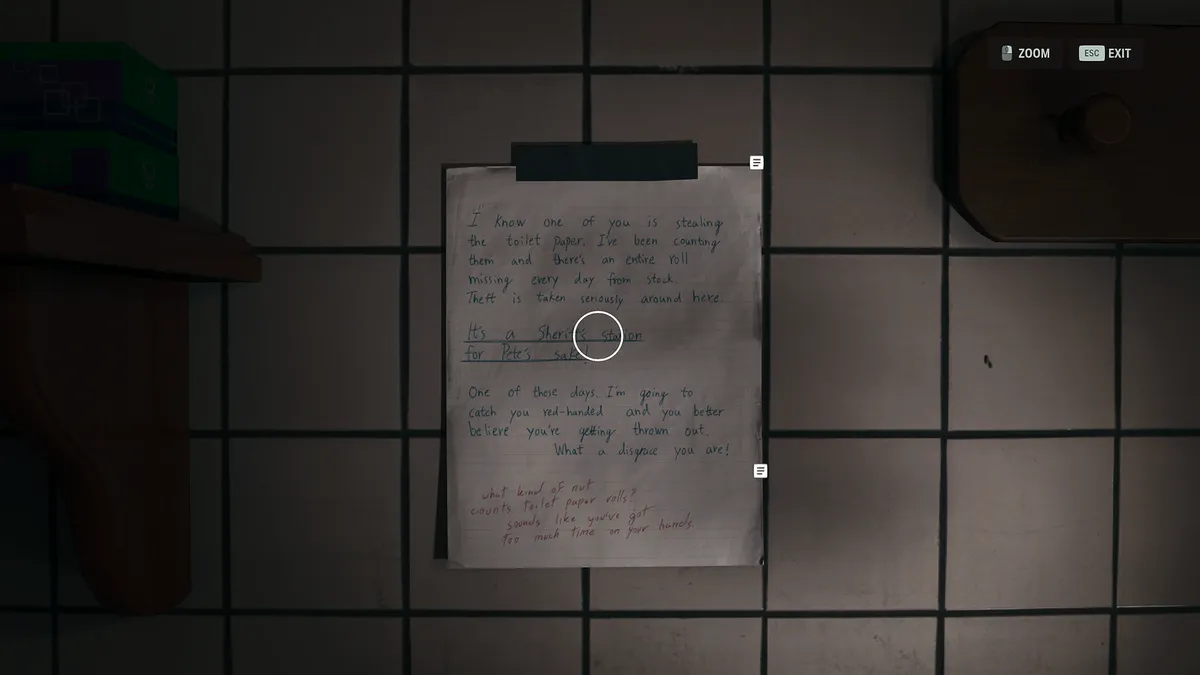 ZOOM
ESC EXIT
I know one of you is stealing
the toilet paper. I've been counting
them and there's an entire roll
missing every day from stock.
Theft is taken seriously around here.
It's a Sheriff's station
for Pete's sake!
One of these days, I'm going to
catch you red-handed and you better
believe you're getting thrown out.
What a disgrace you are!
what kind of nut
counts toilet paper rolls?
sounds like you've got
too much time on your hands.